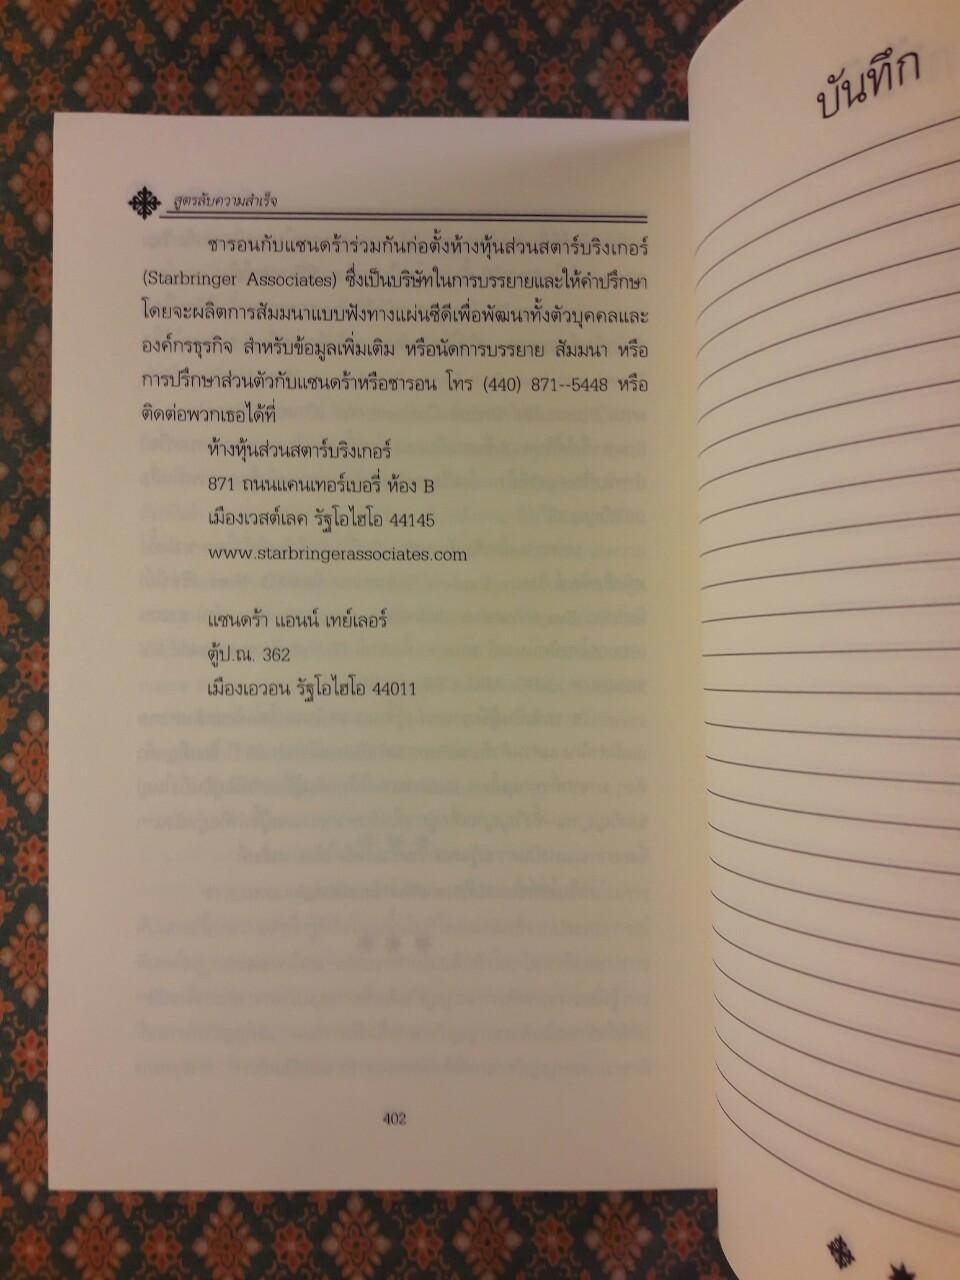 สูตรลับความสำเร็จ
ชารอนกับแซนดร้าร่วมกันก่อตั้งห้างหุ้นส่วนสตาร์บริงเกอร์
(Starbringer Associates) ซึ่งเป็นบริษัทในการบรรยายและให้คำปรึกษา
โดยจะผลิตการสัมมนาแบบฟังทางแผ่นซีดีเพื่อพัฒนาทั้งตัวบุคคลและ
องค์กรธุรกิจ สำหรับข้อมูลเพิ่มเติม หรือนัดการบรรยาย สัมมนา หรือ
การปรึกษาส่วนตัวกับแซนดร้าหรือชารอน โทร (440) 871--5448 หรือ
ติดต่อพวกเธอได้ที่
ห้างหุ้นส่วนสตาร์บริงเกอร์
871 ถนนแคนเทอร์เบอรี่ ห้อง B
เมืองเวสต์เลค รัฐโอไฮโอ 44145
www.starbringerassociates.com
แซนดร้า แอนน์ เทย์เลอร์
ตู้ป.ณ. 362
เมืองเอวอน รัฐโอไฮโอ 44011
402
บันทึก